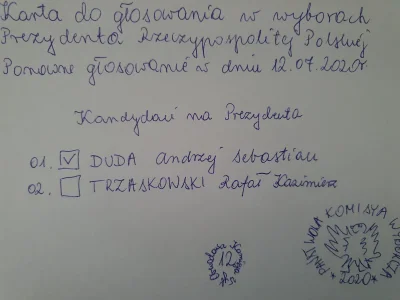 Karta do głosowania w wyborach
Prezydenta Rzeczypospolitej Polskiej
Ponowne głosowanie w dniu 12.07.2020r
Kandydaci na Prezydenta
01. DUDA Andrzej Sebastian
02. TRZASKOWSKI Rafał Kazimierz
12
PAŃSTWOWA KOMISJA WYBORCZA
*2020*